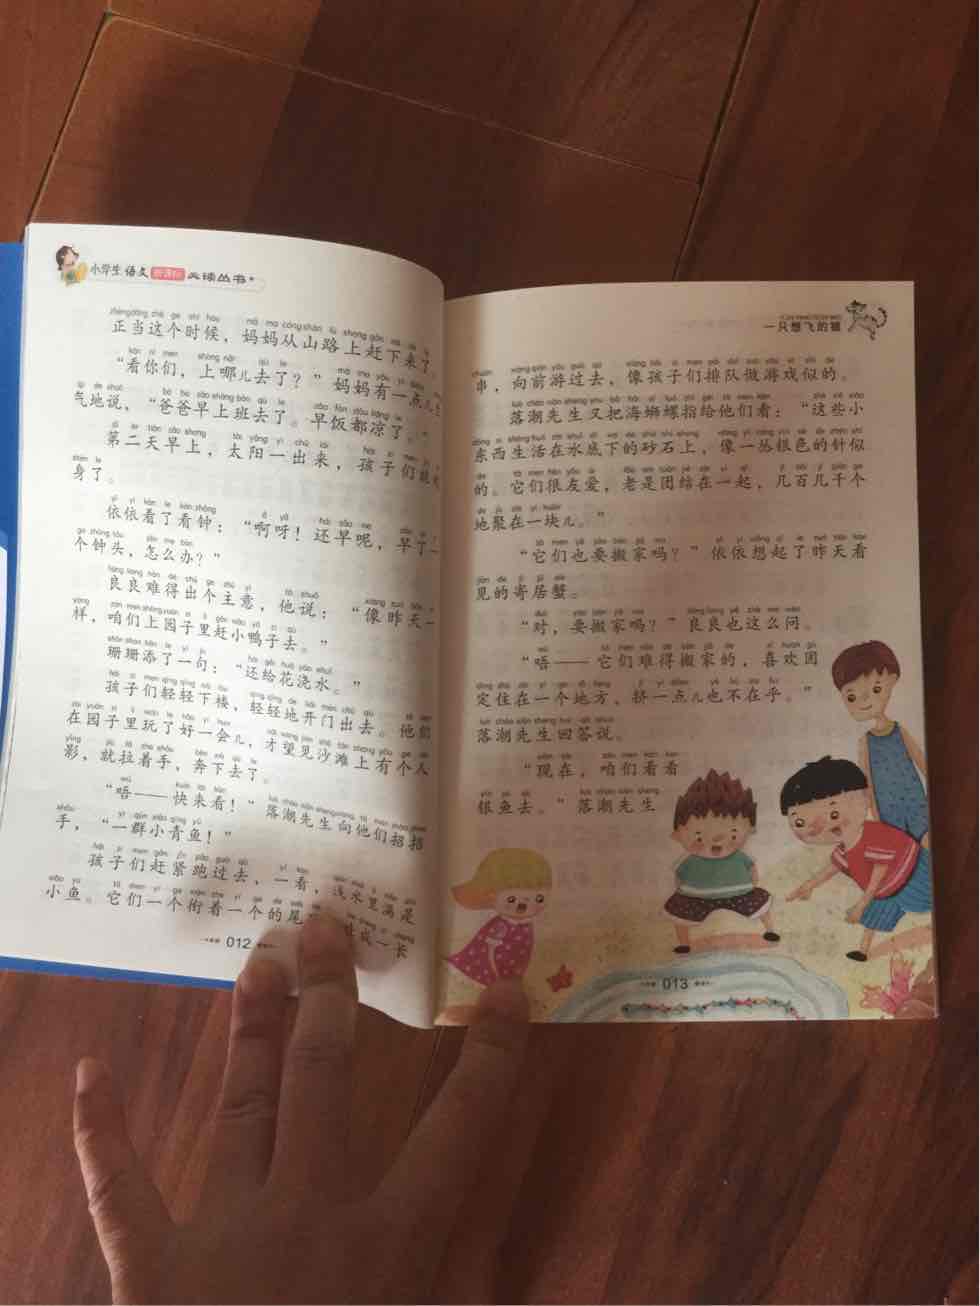 小学生语文新课标必读丛书
正当这个时候，妈妈从山路上赶下来了。
“看你们，上哪儿去了？”妈妈有一点儿生
气地说，“爸爸早上班去了。早饭都凉了。”
第二天早上，太阳一出来，孩子们就
身了。
依依看了看钟：“啊呀！还早呢，早了一
个钟头，怎么办？”
良良难得出个主意，他说：“像昨天一
样，咱们上园子里赶小鸭子去。”
珊珊添了一句：“还给花浇水。”
孩子们轻轻下楼，轻轻地开门出去。他们
在园子里玩了好一会儿，才望见沙滩上有个人
影，就拉着手，奔下去了。
“唔——快来看！”落潮先生向他们招招
手，“一群小青鱼！”
孩子们赶紧跑过去，一看，浅水里满是
小鱼。它们一个衔着一个的尾 成一长
012
一只想飞的猫
串，向前游过去，像孩子们排队做游戏似的。
落潮先生又把海蛳螺指给他们看：“这些小
东西生活在水底下的砂石上，像一丛银色的针似
的。它们很友爱，老是团结在一起，几百几千个
地聚在一块儿。”
“它们也要搬家吗？”依依想起了昨天看
见的寄居蟹。
“对，要搬家吗？”良良也这么问。
“唔——它们难得搬家的，喜欢固
定住在一个地方，挤一点儿也不在乎。”
落潮先生回答说。
“现在，咱们看看
银鱼去。”落潮先生
013